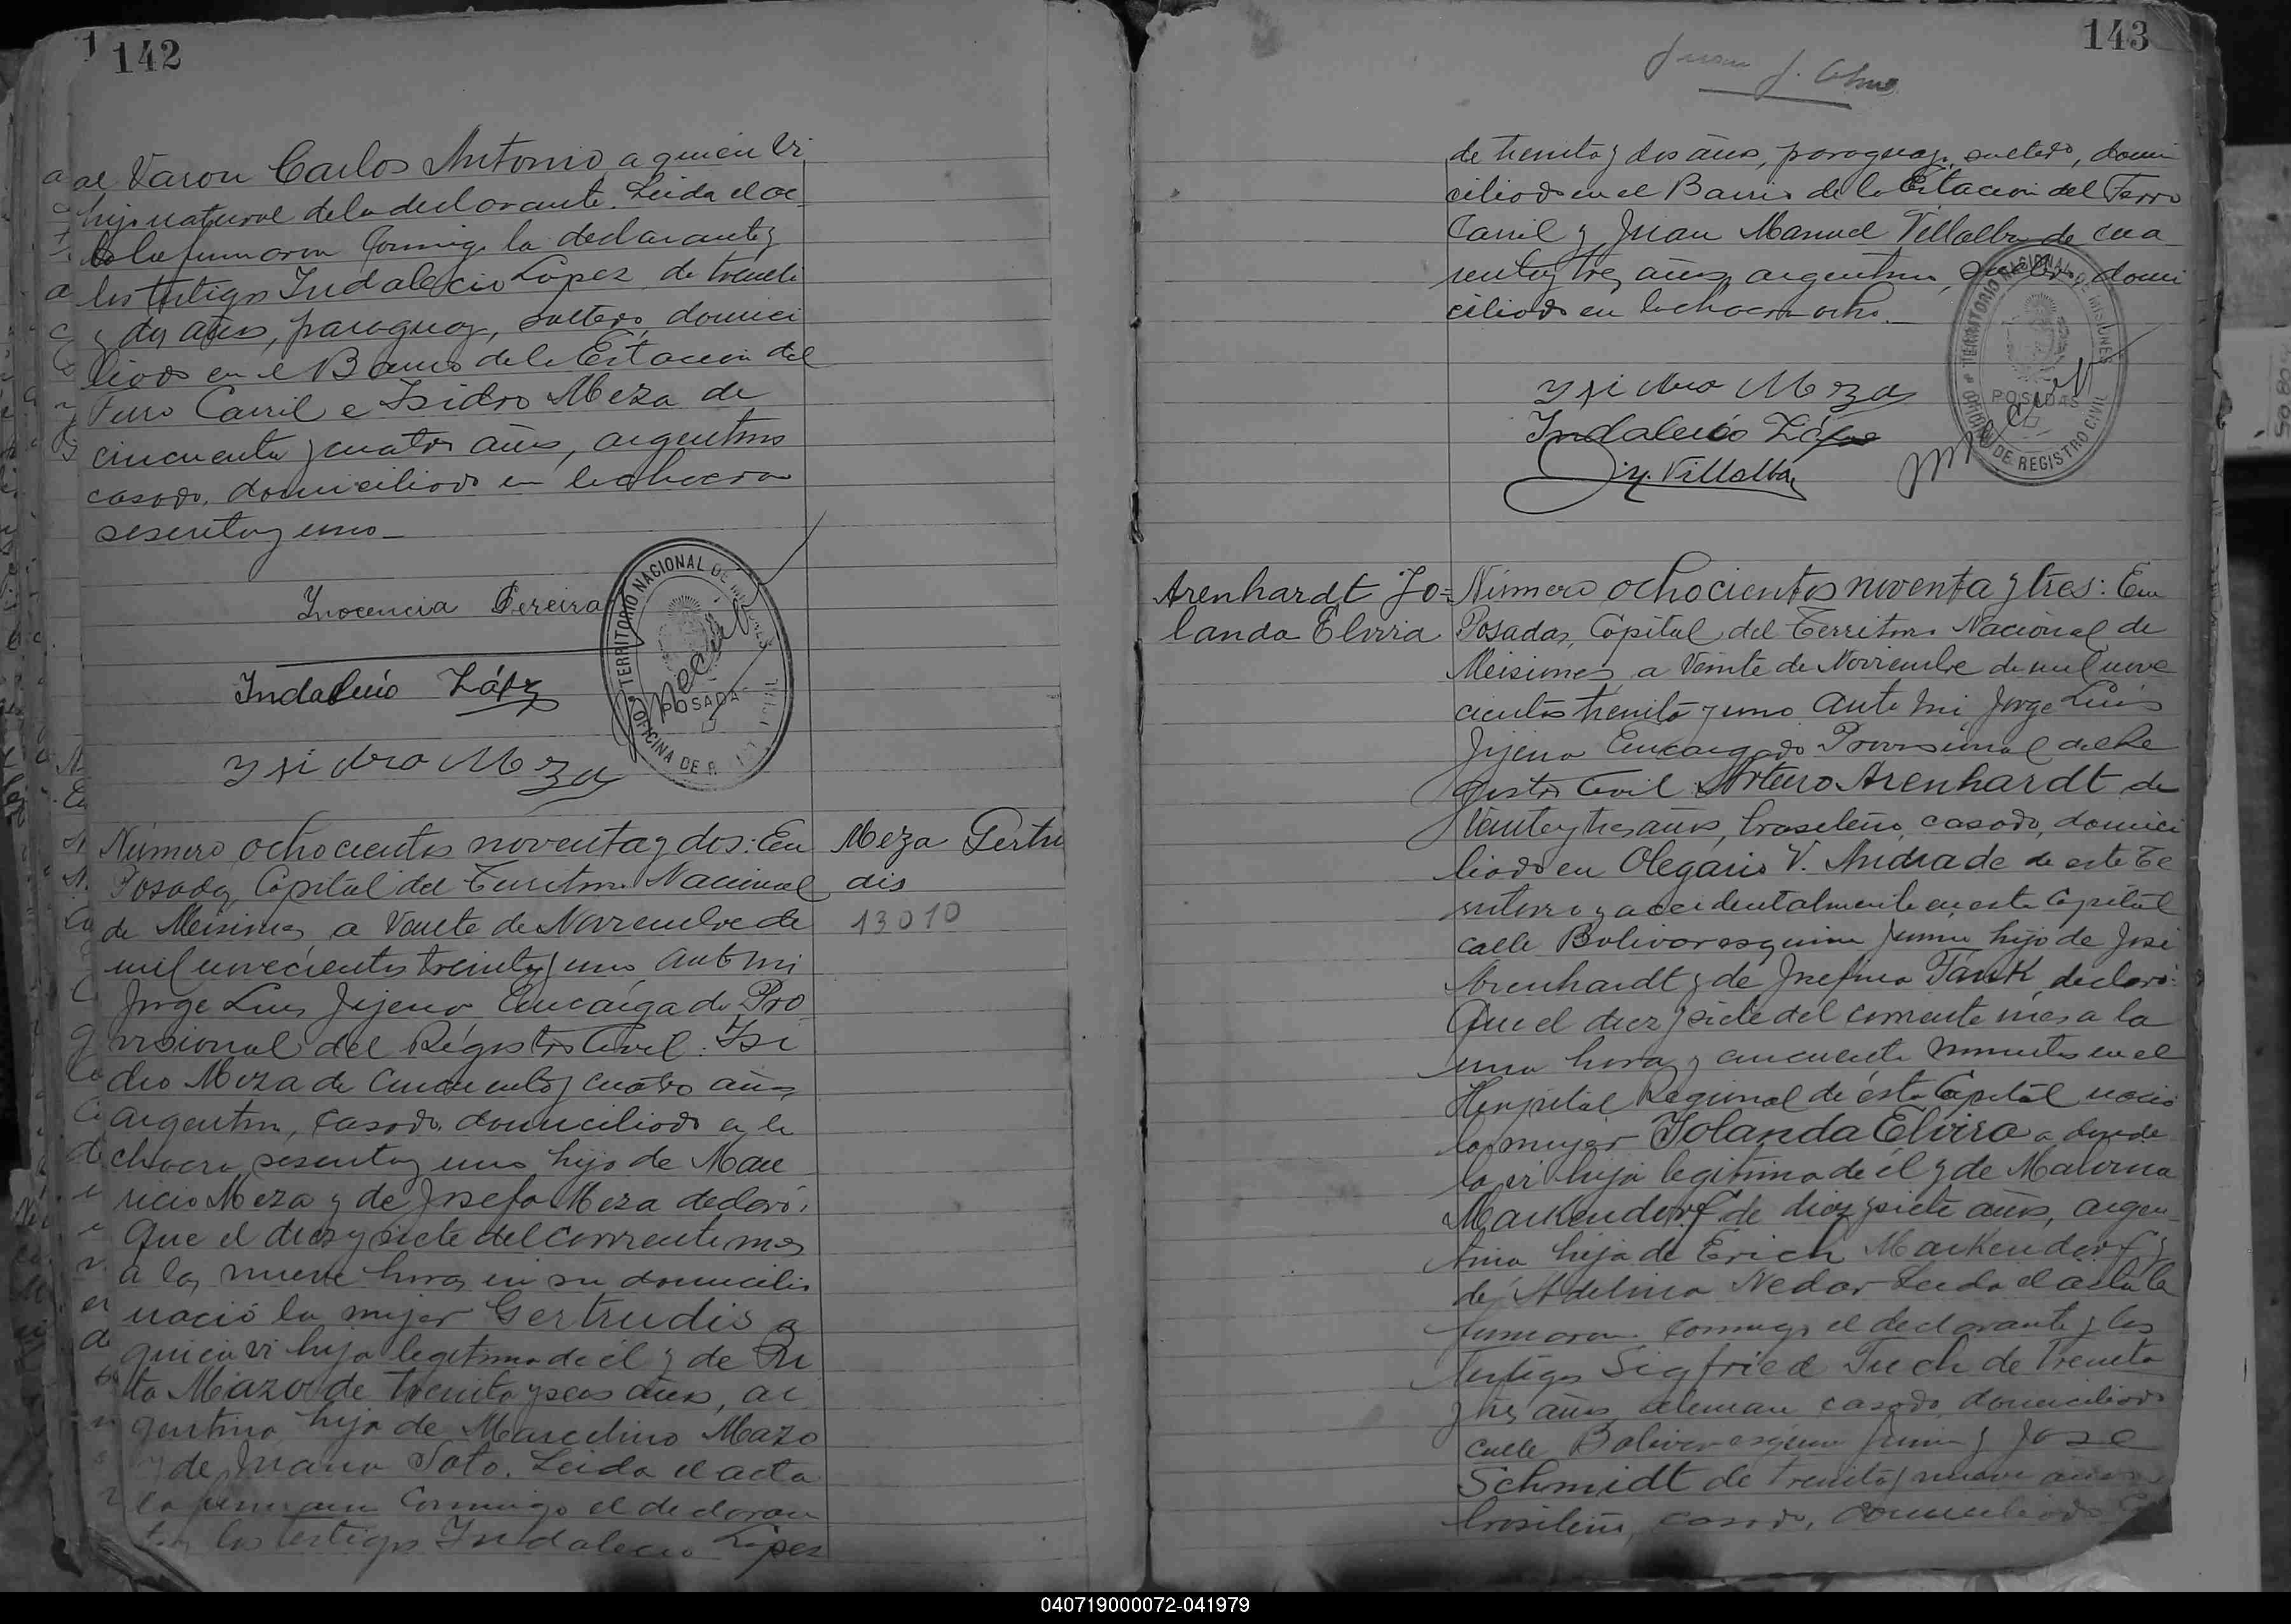 142
al Varon Carlos Antonio, a quien vi
hijo natural de la declarante. Leida el ac
ta la firmaron conmigo la declarante y
los testigos Indalecio Lopez de treinta
y dos años, paraguay, soltero, domici
liado en el Barrio de la Estacion del
Ferro Carril e Isidro Meza de
cincuenta y cuatro años, argentino
casado, domiciliado en la chacra
sesenta y uno_
Inocencia Pereira
Indalecio López
Ysidro Meza
TERRITORIO NACIONAL DE MISIONES
POSADAS
OFICINA DE REGISTRO CIVIL
Meza Gertru
dis
13010
Número ochocientos noventa y dos: En
Posadas, Capital del Territorio Nacional
de Misiones, a Veinte de Noviembre de
mil novecientos treinta y uno ante mi
Jorge Luis Jijena Encargado Pro
visional del Régistro Civil: Isi
dro Meza de cincuenta y cuatro años
argentino, casado, domiciliado en la
chacra sesenta y uno, hijo de Mau
ricio Meza y de Josefa Meza declaró:
Que el diez y siete del corriente mes
a las nueve horas en su domicilio
nació la mujer Gertrudis a
quien vi hija legitima de él y de Ri
ta Mazo de treinta y seis años, ar
gentina hija de Marcelino Mazo
y de Juana Soto. Leida el acta
la firmaron conmigo el declaran
te y los testigos Indalecio Lopez
143
Juan J.
de treinta y dos años, paraguay, soltero, domi
ciliado en el Barrio de la Estacion del Ferro
Carril y Juan Manuel Villalba de cua
renta y tres años, argentino, soltero, domi
ciliado en la chacra ocho._
Ysidro Meza
Indalecio López
J. M. Villalba
TERRITORIO NACIONAL DE MISIONES
POSADAS
OFICINA DE REGISTRO CIVIL
Arenhardt Yo=
landa Elvira
Número ochocientos noventa y tres: En
Posadas, Capital del Territorio Nacional de
Misiones, a Veinte de Noviembre de mil nove
cientos treinta y uno ante mi Jorge Luis
Jijena Encargado Provisional del Re
gistro Civil Arturo Arenhardt de
Veinte y tres años, brasileño, casado, domici
liado en Olegario V. Andrade de este Te
rritorio y accidentalmente en esta Capital
calle Bolivar esquina Junin hijo de José
Arenhardt y de Josefina Tank, declaró:
Que el diez y siete del corriente mes a la
una hora y cincuenta minutos en el
Hospital Regional de ésta Capital nació
la mujer Yolanda Elvira a donde
la vi hija legitima de él y de Malvina
Markendorf de diez y siete años, argen
tina hija de Erich Markendorf y
de Adelina Nedar Leida el acta la
firmaron conmigo el declarante y los
testigos Sigfried Tuch de treinta
y tres años, aleman, casado, domiciliado
calle Bolivar esquina Junin y José
Schmidt de treinta y nueve años
brasileño, casado, domiciliado
040719000072-041979